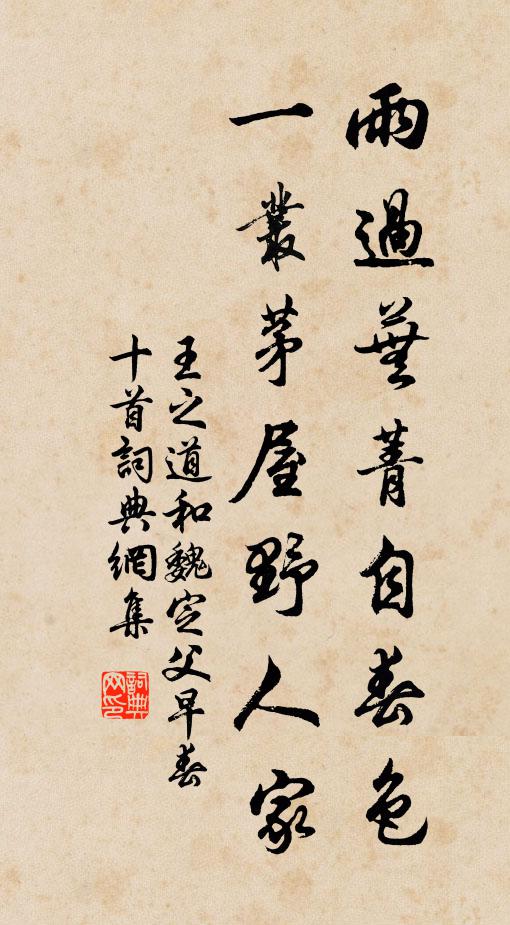 雨過蕪菁自春色
一叢茅屋野人家
王之道和魏定父早春
十首詞典網集
詞典
网印